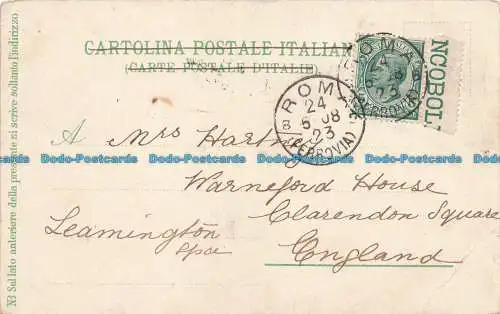 CARTOLINA POSTALE ITALIANA
(CARTE POSTALE D'ITALIE)
NCOBOL
ROMA
24
6 08
23
(FERROVIA)
ROMA
24
6 08
23
(FERROVIA)
8
A Mrs
Warneford House
Clarendon Square
Leamington
Spa
England
NB Sul lato anteriore della presente si scrive soltanto l'indirizzo
Dodo-Postcards Dodo-Postcards Dodo-Postcards Dodo-Postcards